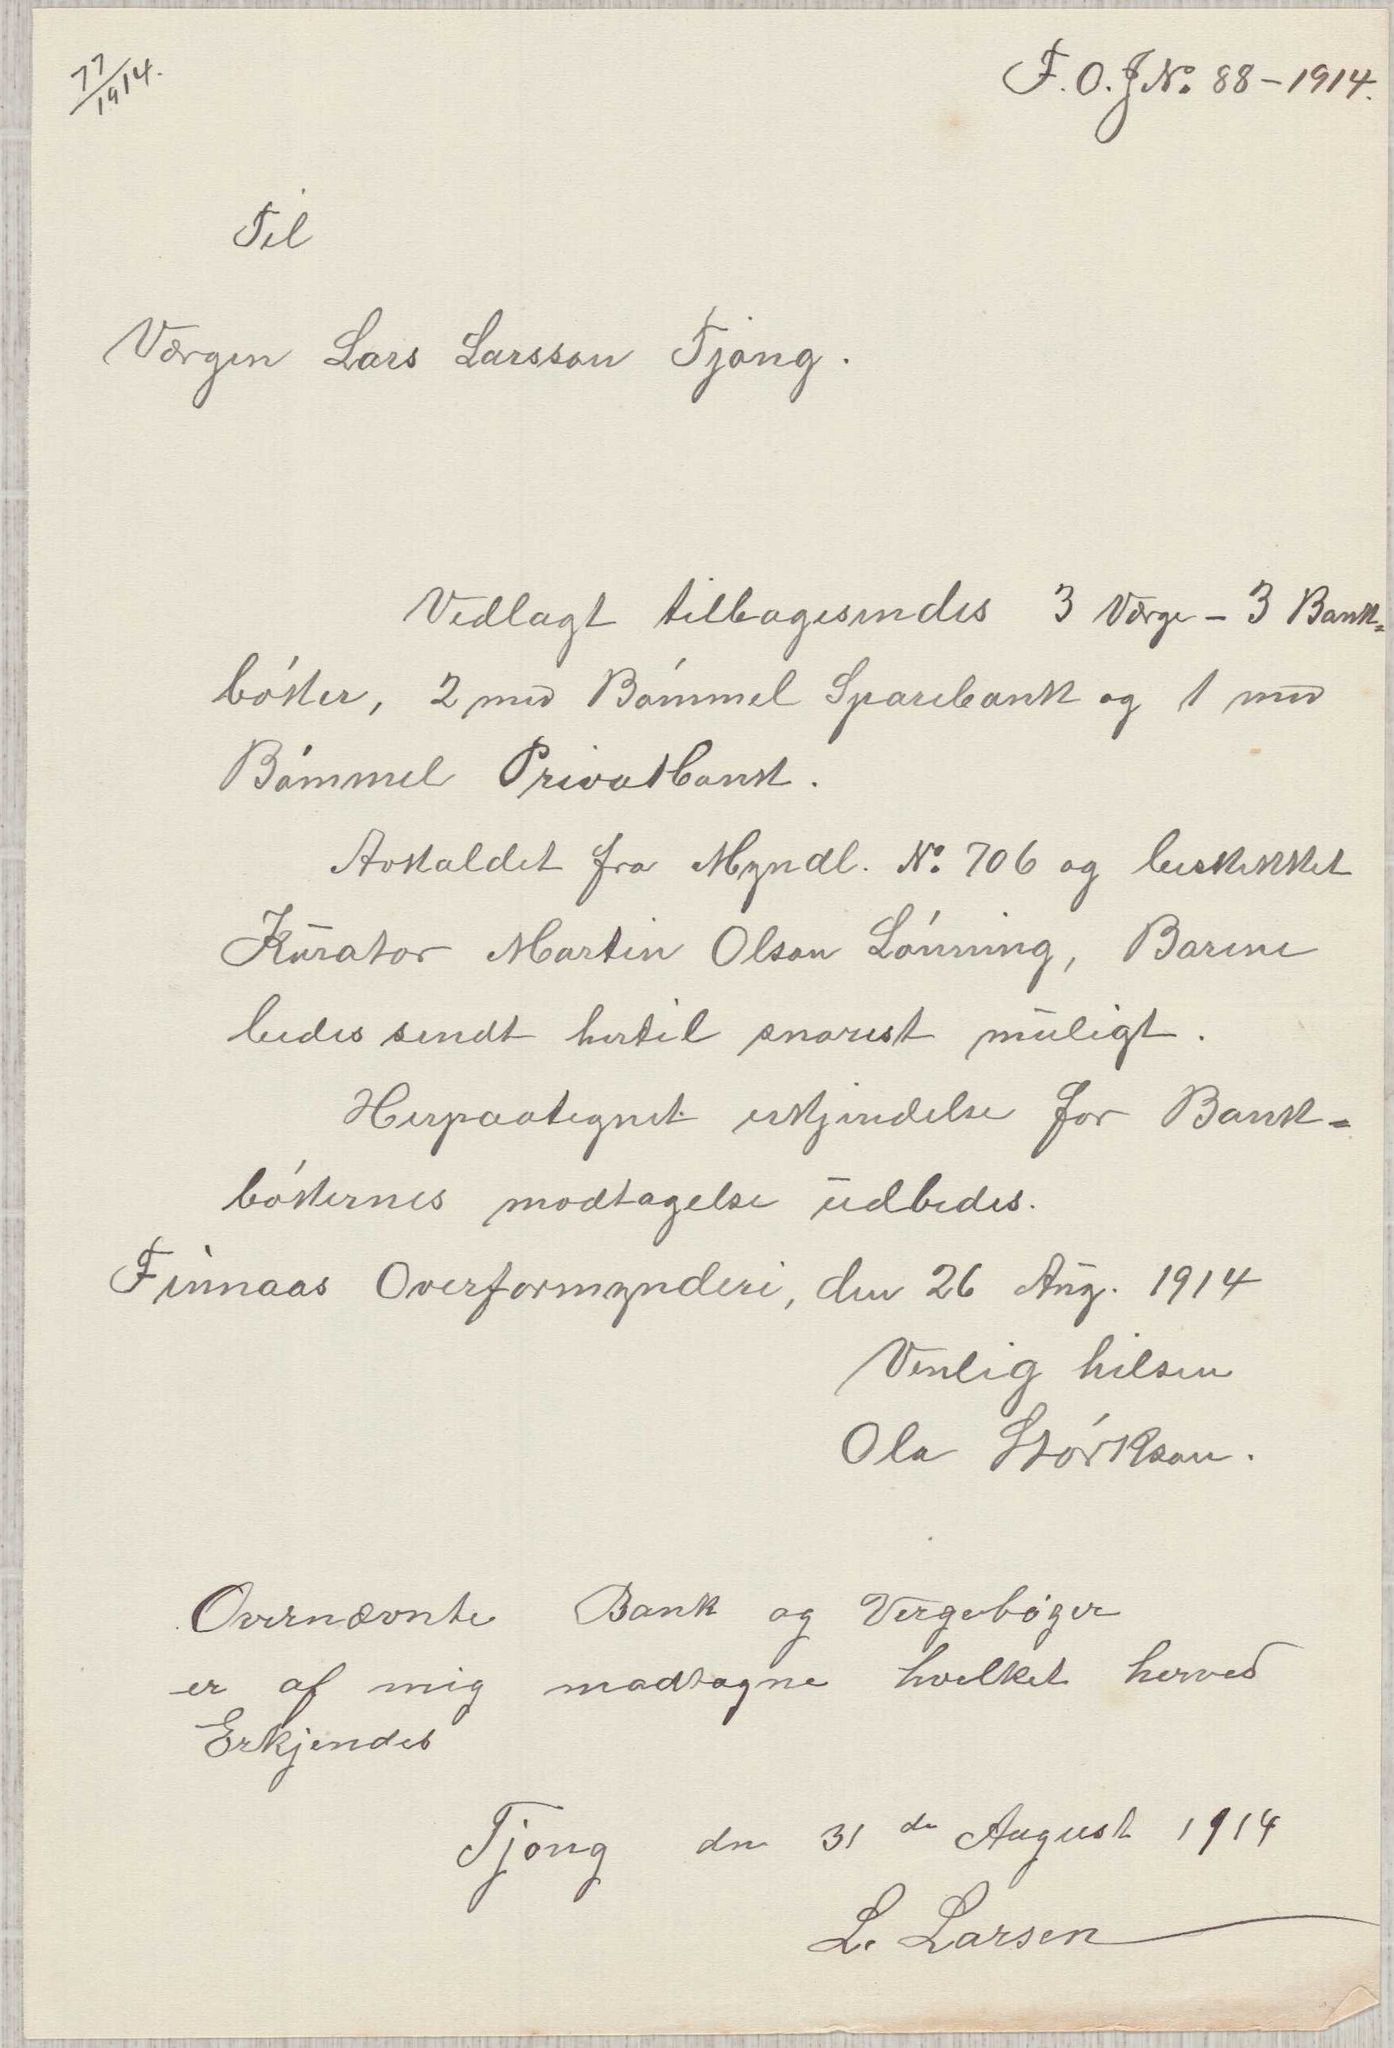 77/1914.
F. O. J No. 88 – 1914.
Til
Værgen Lars Larsson Tjong.
Vedlagt tilbagesendes 3 Værge – 3 Bank-
bóker, 2 med Bómmel Sparebank og 1 med
Bómmel Privatbank.
Avkaldet fra Myndl. No. 706 og beskikket
Kurator Martin Olson Lónning, Barene
bedes sendt hertil snarest muligt.
Herpaategnet erkjendelse for Bank-
bókernes modtagelse udbedes.
Finnaas Overformynderi, den 26 Aug. 1914
Venlig hilsen
Ola Stórkson.
Overnævnte Bank og Vergebøger
er af mig modtagne hvilket herved
Erkjendes
Tjong den 31 de August 1914
L. Larsen